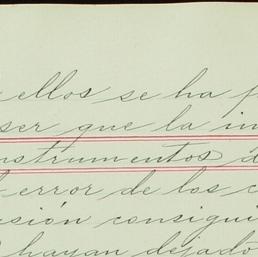 ellos se ha
ser que la
nstrumentos
error de los
sión consigui
hayan dejado